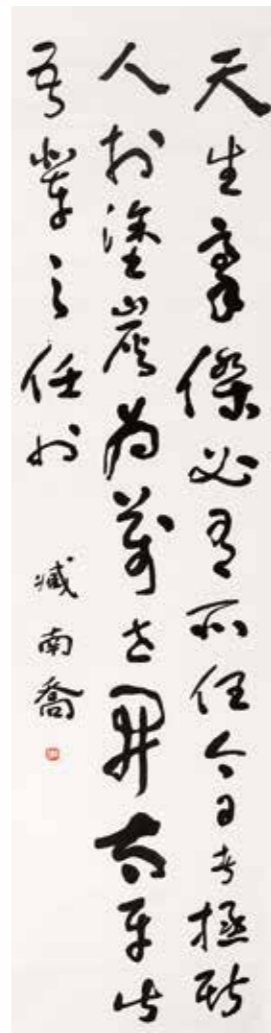 天生豪傑必有所任今日者拯斯
人於塗炭為萬世開太平此
吾輩之任也
臧南喬